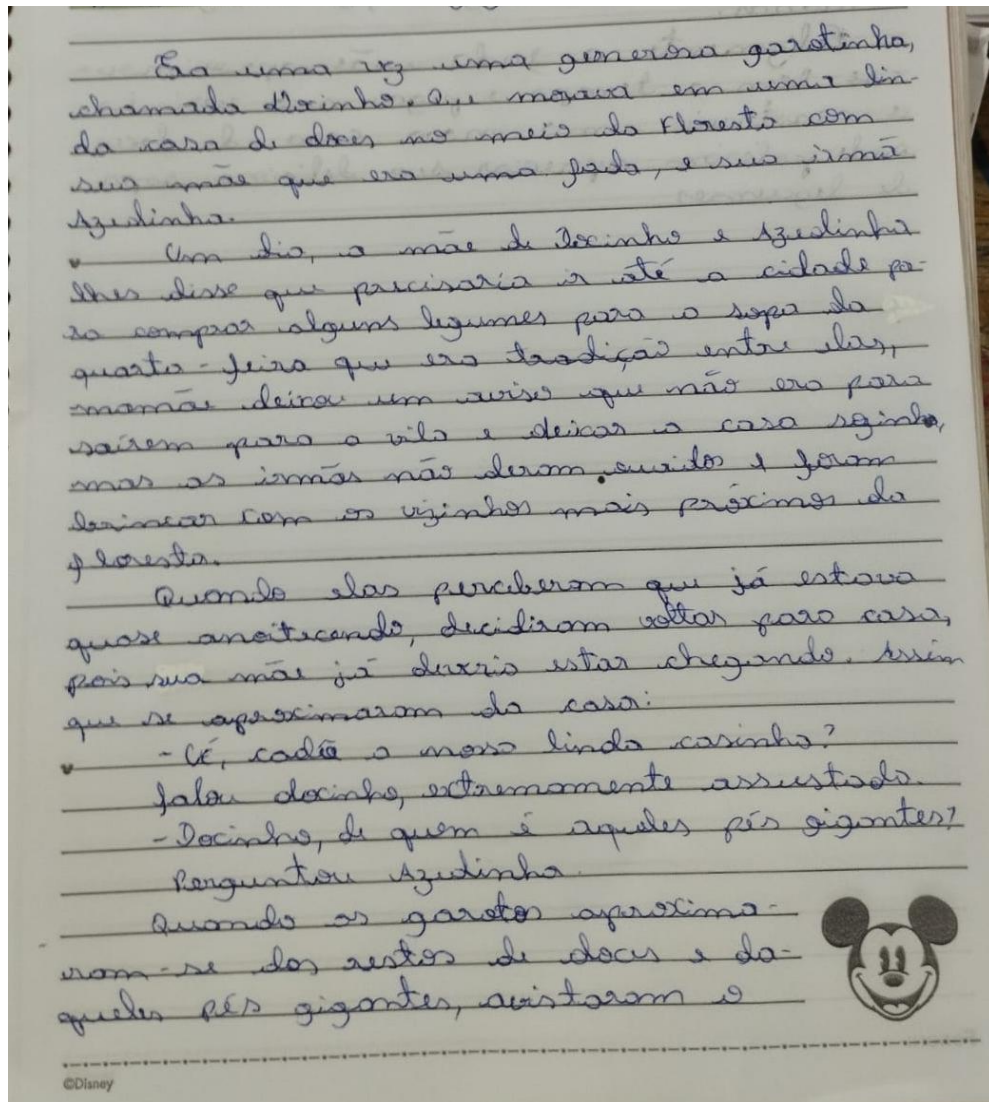 Era uma vez uma generosa garotinha,
chamada Docinho. Que morava em uma lin-
da casa de doces no meio da floresta com
sua mãe que era uma fada, e sua irmã
Azedinha.
Um dia, a mãe de Docinho e Azedinha
lhes disse que precisaria ir até a cidade pa-
ra comprar alguns legumes para a sopa da
quarta-feira que era tradição entre elas,
mamãe deixou um aviso que não era para
saírem para a vila e deixar a casa soginha,
mas as irmãs não deram ouvidos e foram
brincar com os vizinhos mais próximos da
floresta.
Quando elas perceberam que já estava
quase anoitecendo, decidiram voltar para casa,
pois sua mãe já deveria estar chegando. Assim
que se aproximaram da casa:
- Cê, cadê a nossa linda casinha?
falou docinho, extremamente assustada.
- Docinho, de quem é aqueles pés gigantes?
Perguntou Azedinha.
Quando as garotas aproxima-
ram-se dos restos de doces e da-
queles pés gigantes, avistaram o
©Disney